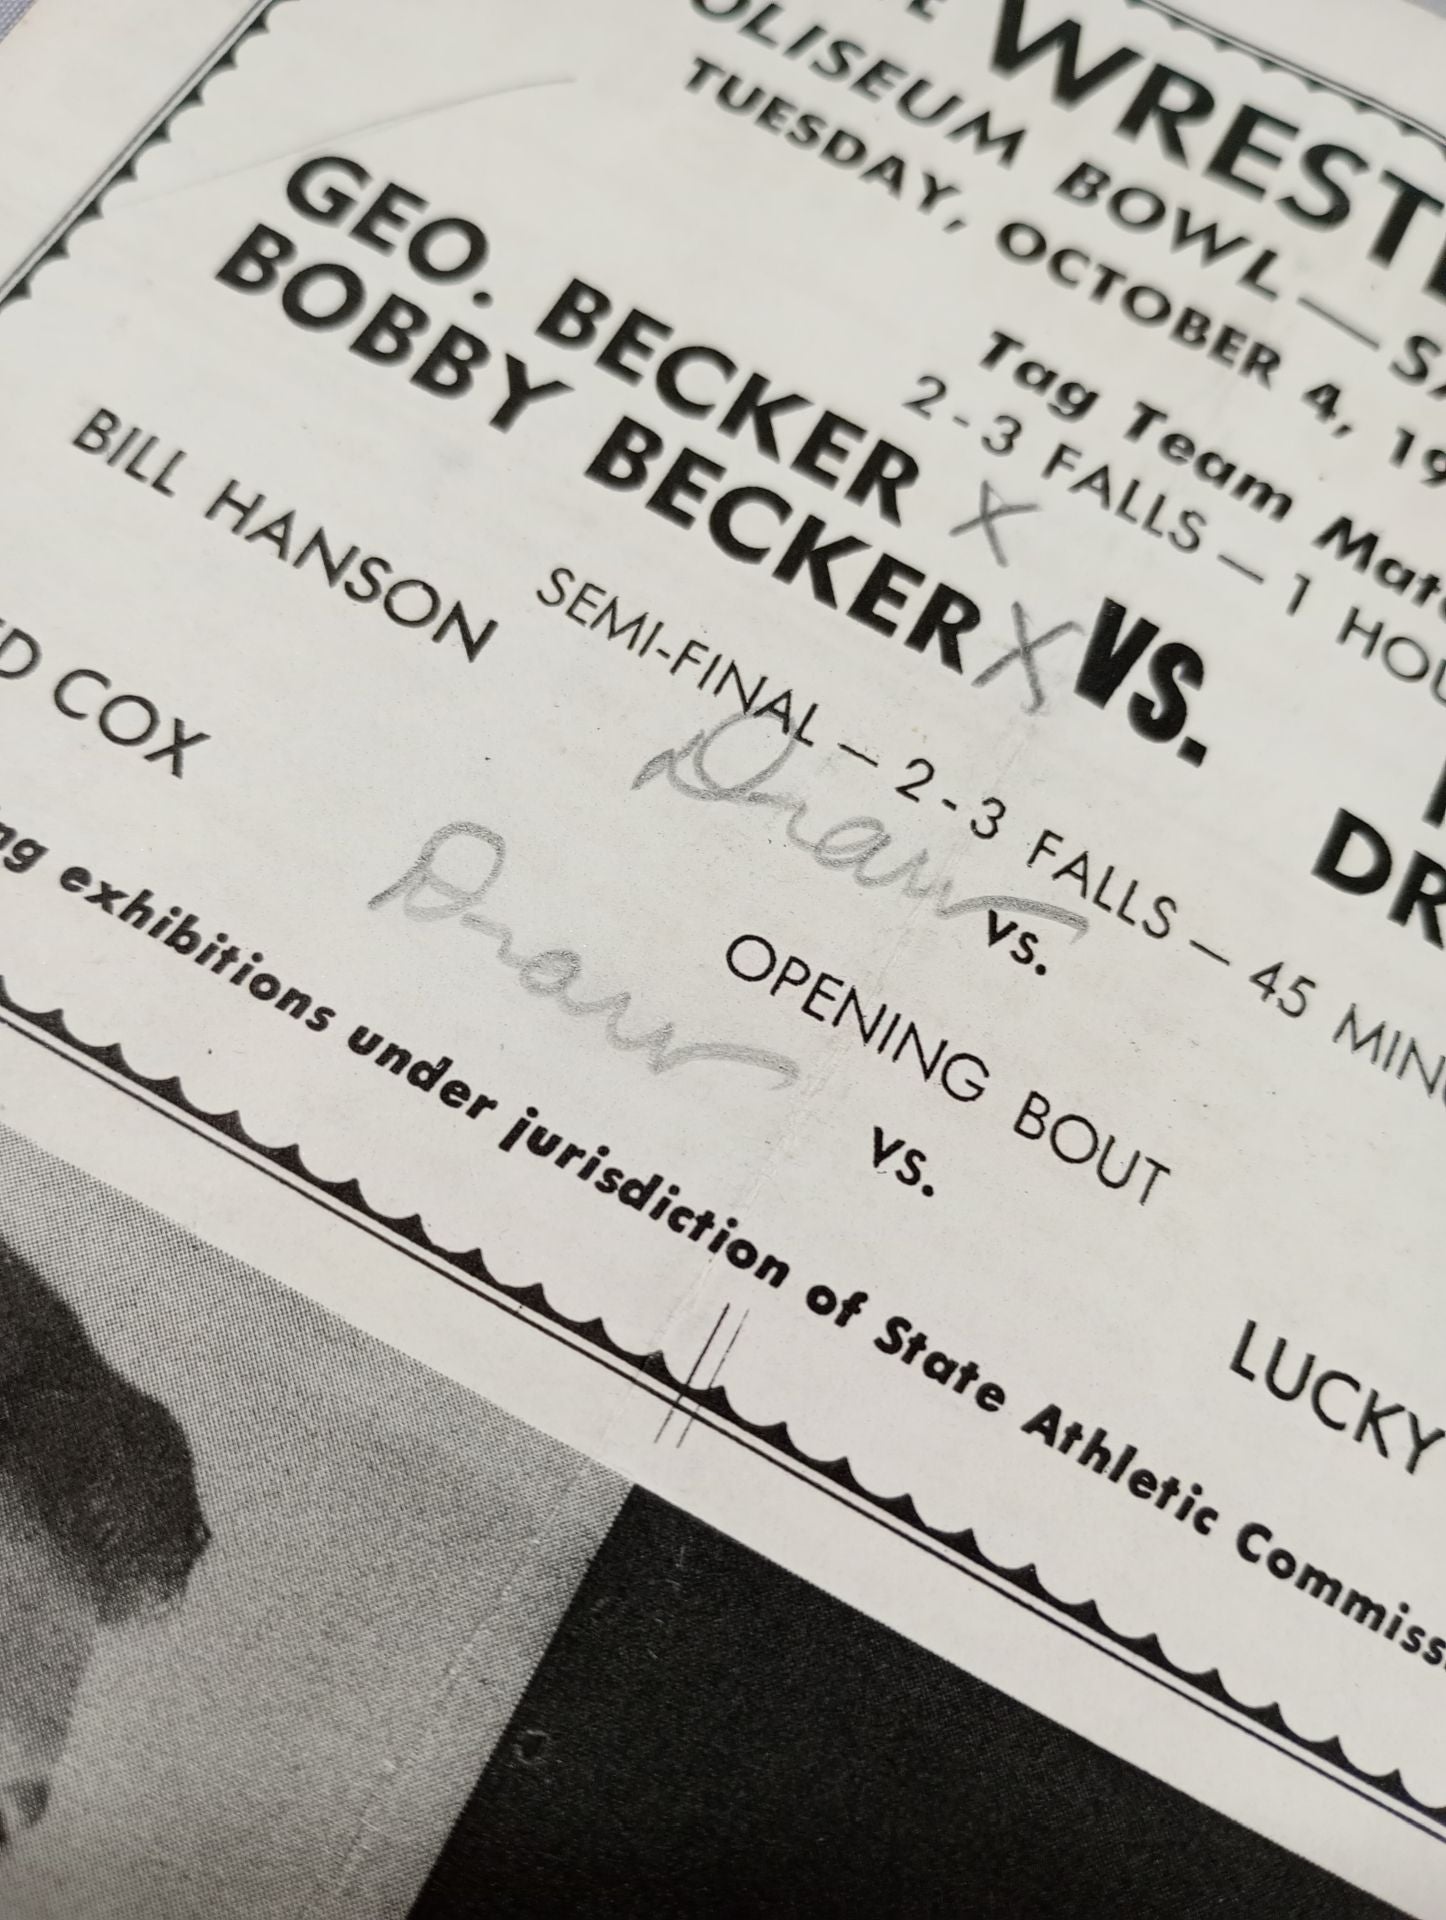 WREST
OLISEUM BOWL—SA
TUESDAY, OCTOBER 4, 19
Tag Team Mat
2-3 FALLS — 1 HOU
GEO. BECKER X
BOBBY BECKER X VS.
DR
SEMI-FINAL — 2-3 FALLS — 45 MINU
BILL HANSON Draw vs.
OPENING BOUT
ED COX Draw vs. LUCKY
ng exhibitions under jurisdiction of State Athletic Commiss